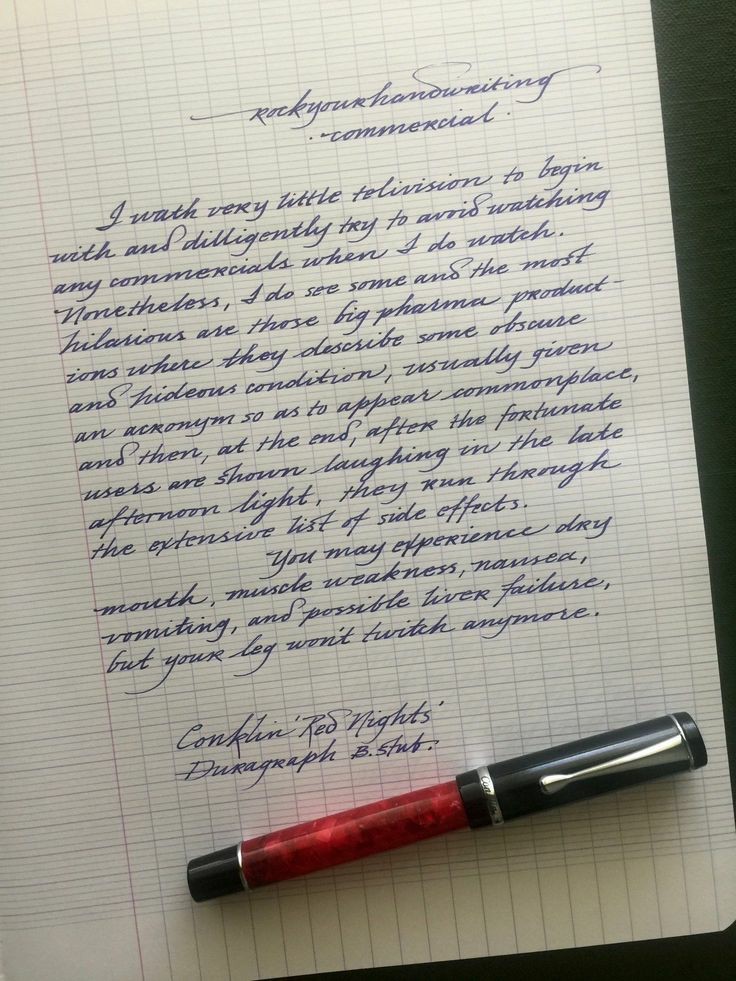 rockyourhandwriting
· commercial ·
I wath very little telivision to begin
with and dilligently try to avoid watching
any commercials when I do watch.
Nonetheless, I do see some and the most
hilarious are those big pharma product-
ions where they describe some obscure
and hideous condition, usually given
an acronym so as to appear commonplace,
and then, at the end, after the fortunate
users are shown laughing in the late
afternoon light, they run through
the extensive list of side effects.
You may experience dry
mouth, muscle weakness, nausea,
vomiting, and possible liver failure,
but your leg won't twitch anymore.
Conklin 'Red Nights'
Duragraph B. Stub.